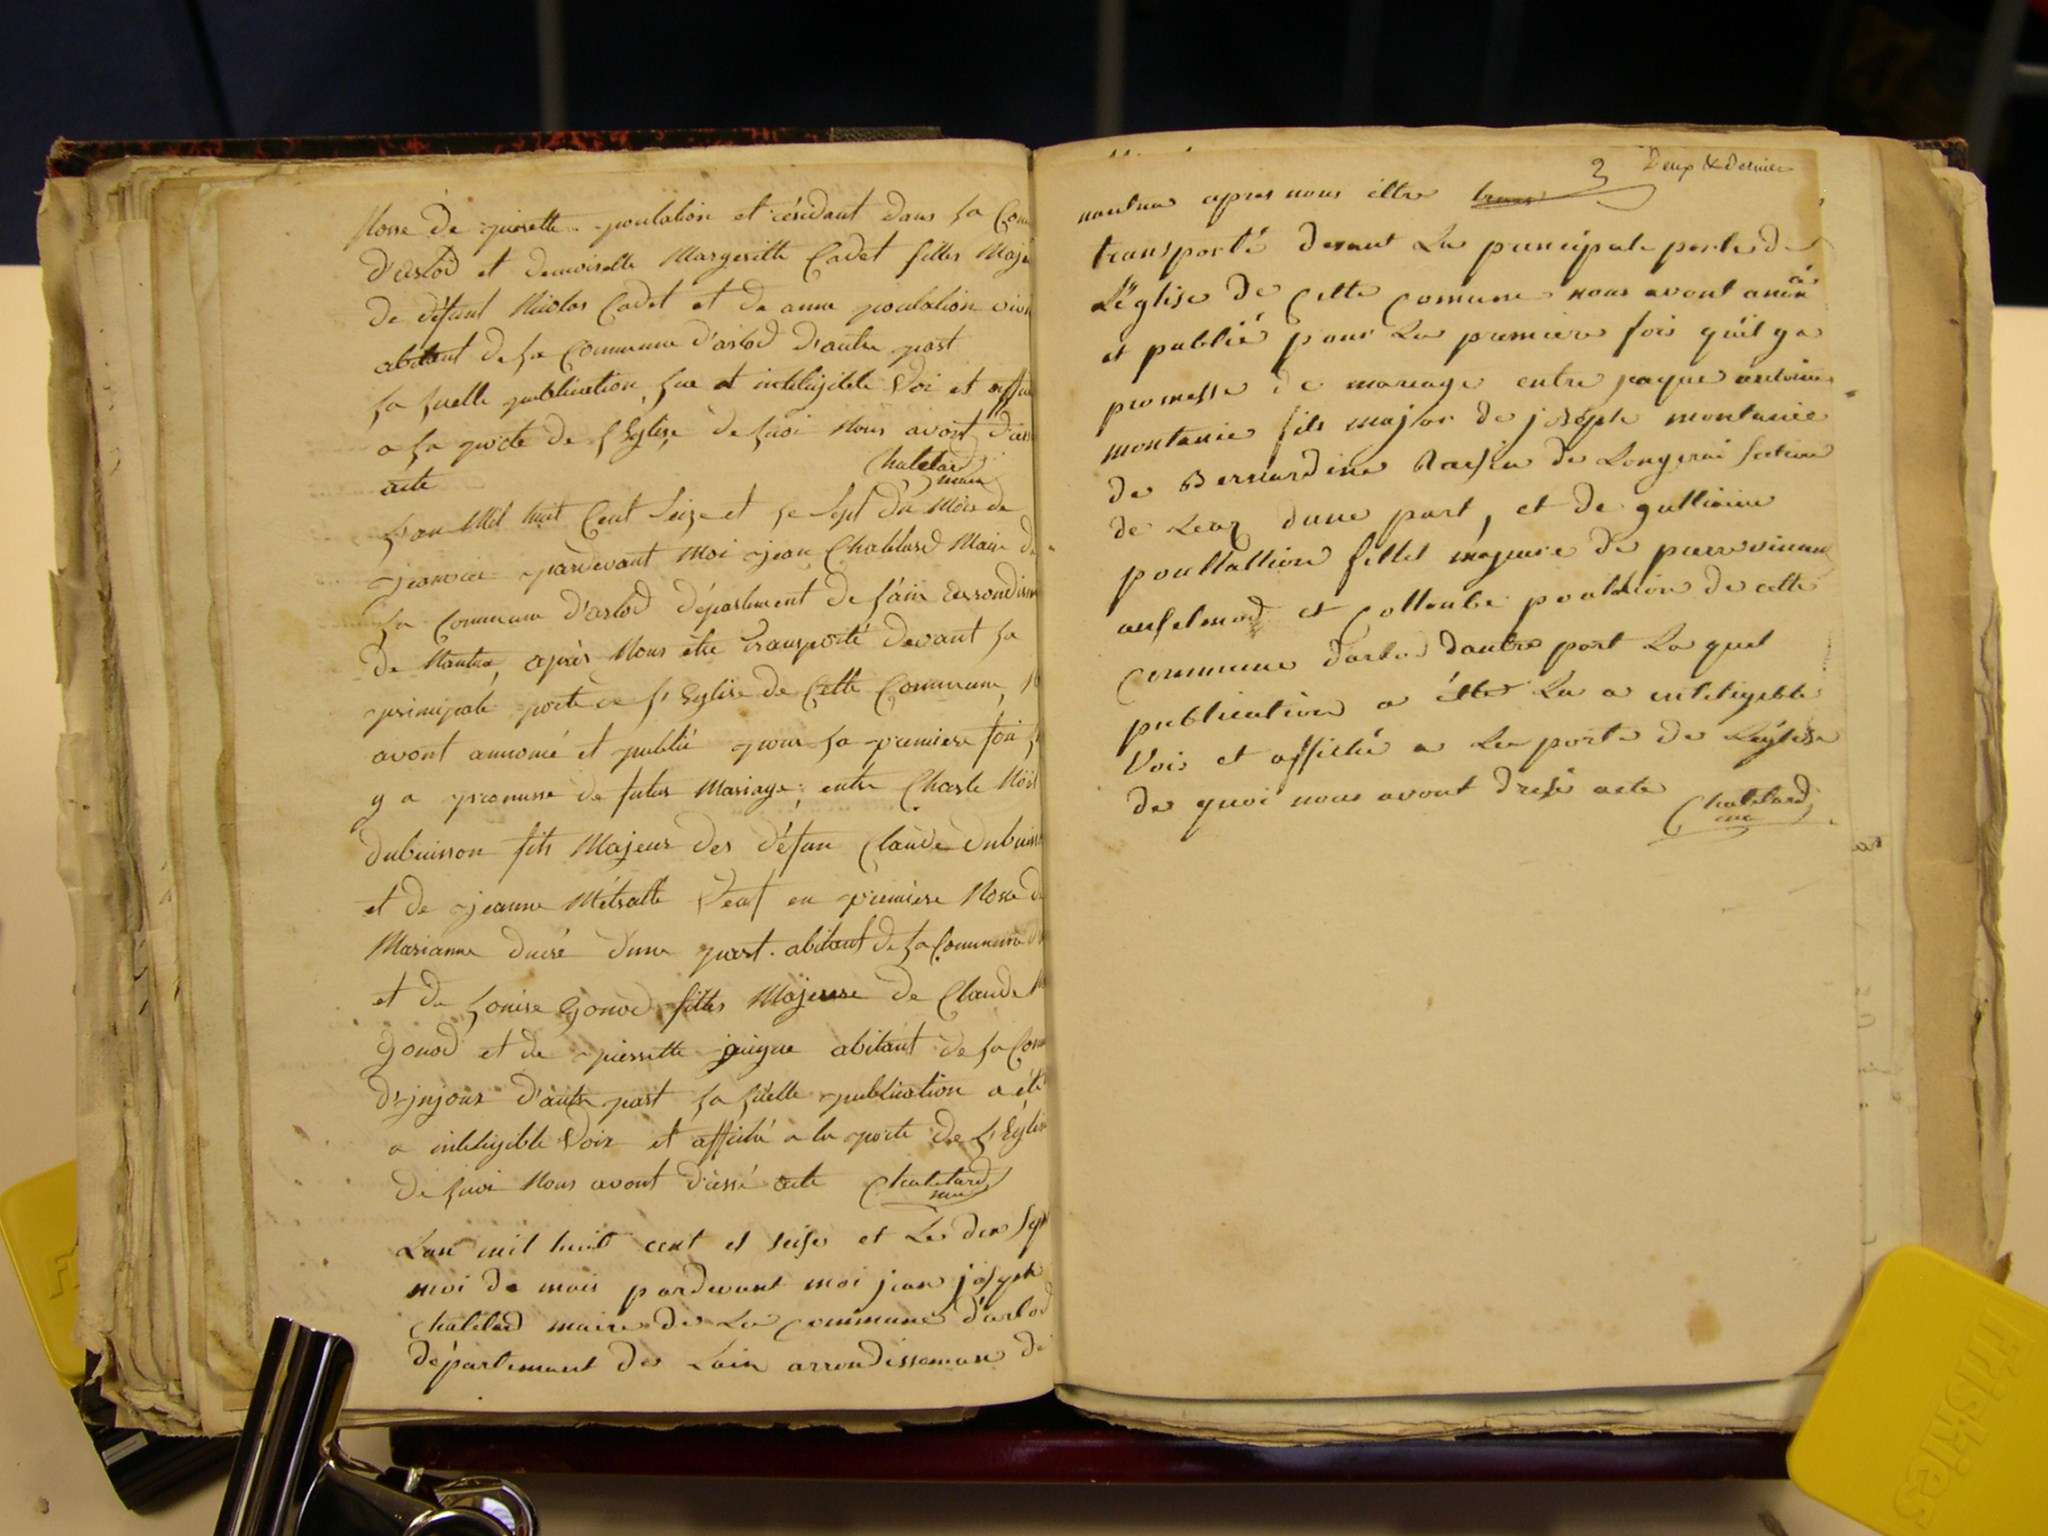 Nosse de pierrette poulation et résidant dans la Com
d'arlod et demoiselle Margeritte Cadet filles Maje
de défunt Nicolas Cadet et de anne poulation vivn
abitant de la Commune d'arlod d'autre part
la quelle publication lue a inteligible Voi et affic
a la porte de l'Eglise de quoi Nous avont
acte Chatelard
maire
L'an Mil huit Cent Seize et le Sept du Mois de
janvier pardevant Moi jean Chatelard Maire d
la Commune d'arlod département de l'ain arrondism
de Nantua, après Nous être transporté devant la
principale porte de l'Eglise de Cette Commune,
avont annoncé et publié pour la premiere foi
y a promesse de futur Mariage; entre Charle
dubuisson fils Majeur des défun Claude dubuiss
et de jeanne Métralle Veaf en premiere Nosse d
Marianne ducré d'une part. abitant de la Commune
et de Louise Gonod filles Majeure de Claude
Gonod et de pierrette abitant de la Com
d'injoux d'autre part la quelle publication a été
a inteligible Voix et affiché a la porte de L'Eglis
de quoi Nous avont dressé acte Chatelard
mai
Lan mil huit cent et seise et Le dix Sep
moi de mais pardevant moi jean joseph
Chatelard maire de La commune d'arlod
département de Lain arrondisseman de
2 Deux & dernier
nantua apres nous ettre
transporté devant La principale porte de
L'église de Cette Comune nous avont
et publié pour La premiere fois qu'il y a
promesse de mariage entre jaque antoine
montanie fils major de joseph montanie
de Bernardine de Longerai section
de Leaz dune part, et de
poullattion filles majeure de pierre
anselmod et Collombe poulation de cette
Commune darlod dautre part La quel
publication a étté Lu a inteligeble
Vois et affiché a La porte de Léglise
de quoi nous avont dressé acte Chatelard